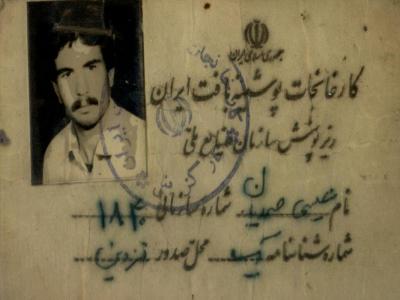 جمهوری اسلامی ایران
کارخانجات پوشینه بافت ایران
زیر پوشش سازمان صنایع ملی
نام عیسی صمدیان شماره سازمانی
شماره شناسنامه محل صدور قزوین